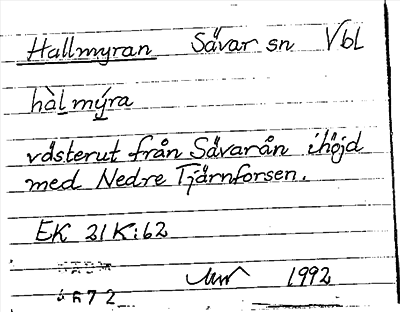 Hallmyran Sävar sn Vbl
hàlmýra
västerut från Sävarån i höjd
med Nedre Tjärnforsen.
EK 21K:62
1992